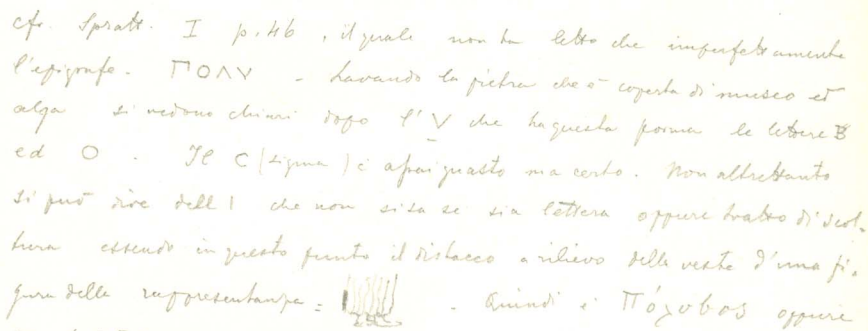 cfr. Spratt. I p. 46, il quale non ha letto che imperfettamente
l'epigrafe. ΠΟΛV - Lavando la pietra che è coperta di musco ed
alga si vedono chiari dopo l'V che ha questa forma le lettere B
ed O. Il C (sigma) è assai guasto ma certo. Non altrettanto
si può dire dell' I che non si sa se sia lettera oppure tratto di scol-
tura essendo in questo punto il distacco a rilievo della veste d'una fi-
gura della rappresentanza = - Quindi è oppure